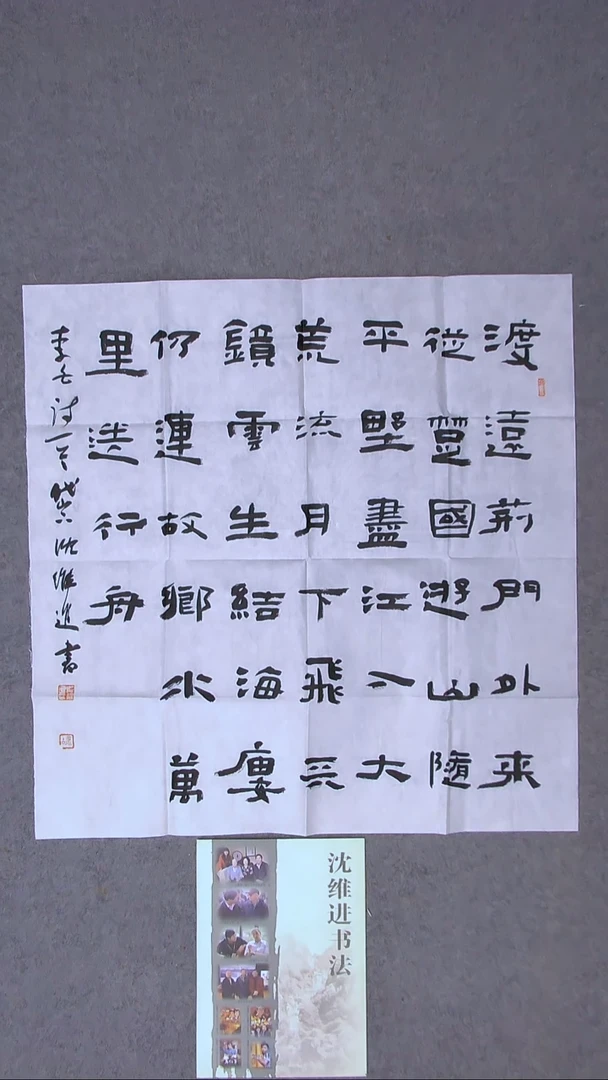 渡遠荊門外来
從楚國遊山隨
平野盡江入大
荒流月下飛天
鏡雲生結海廔
仍連故鄉水萬
里送行舟
李白诗一首 沈維進書
沈维进书法